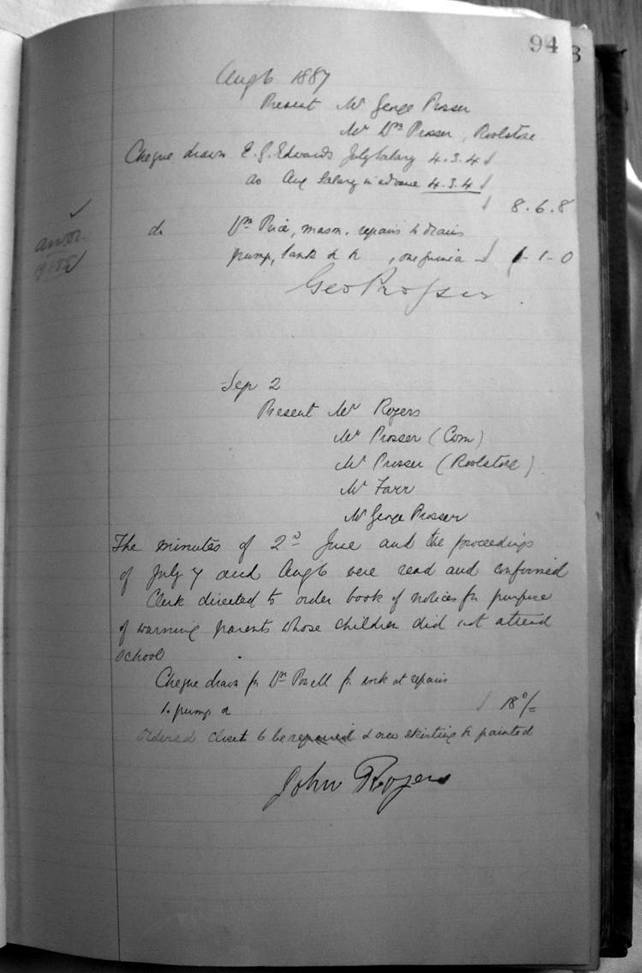 94
Aug 6 1887
Present Mr George Prosser
Mr Wm Prosser, Roolstore
Cheque drawn E. J. Edwards July Salary 4.3.4
do Aug Salary in advance 4.3.4
8.6.8
do Wm Price, mason, repairs to drains
pump, tank &c &c, one guinea 1-1-0
Geo Prosser
Sep 2
Present Mr Rogers
Mr Prosser (Com)
Mr Prosser (Roolstore)
Mr Farr
Mr George Prosser
The minutes of 2nd June and the proceedings
of July 7 and Aug 6 were read and confirmed
Clerk directed to order book of notices for purpose
of warning parents whose children did not attend
School
Cheque drawn for Wm Powell for work at repairs
to pump 18/-
Ordered closet to be repaired & new skirting & painted
John Rogers